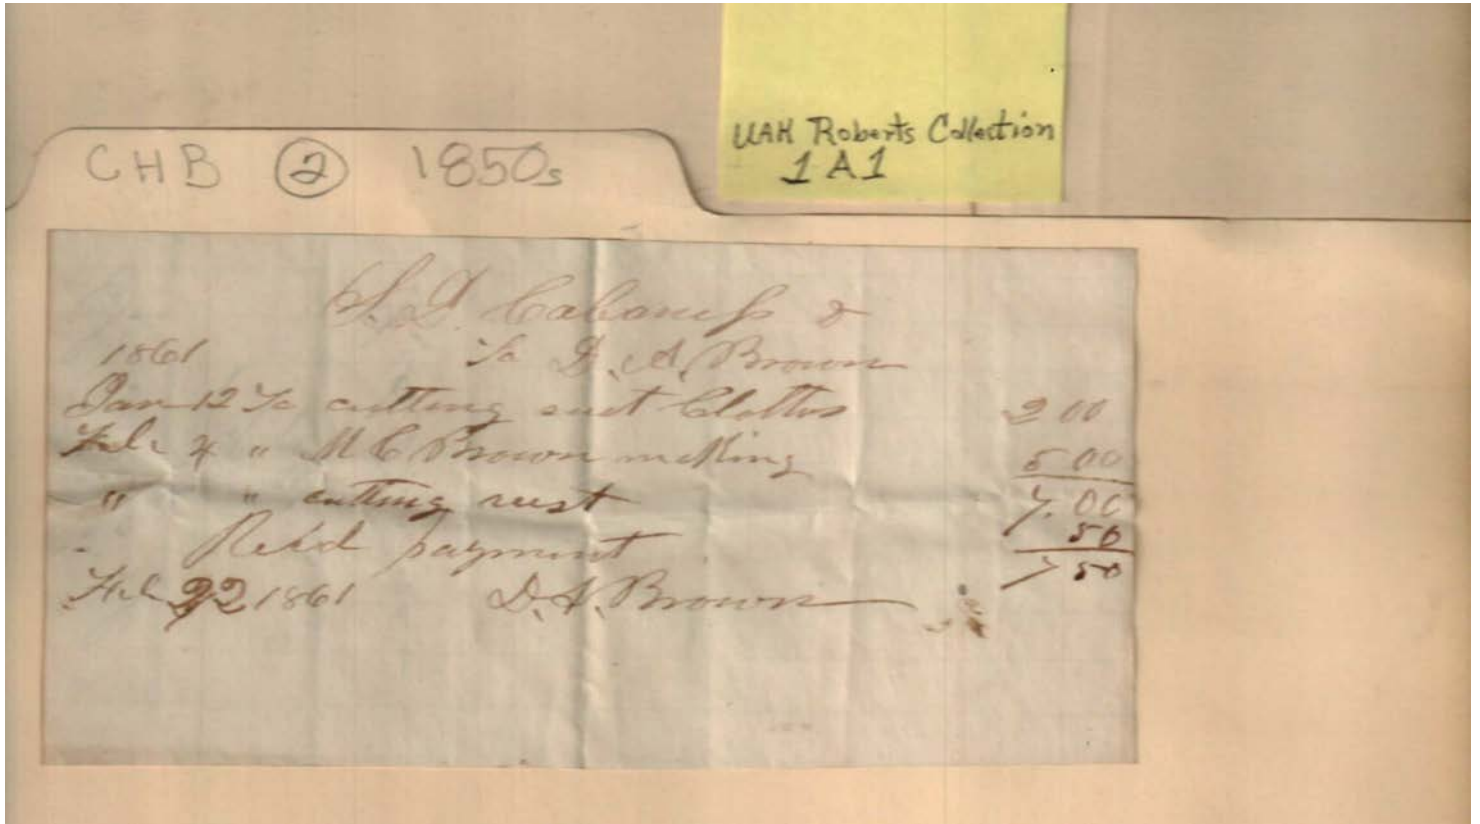 UAH Roberts Collection
1 A 1
CHB ② 1850s
S. D. Cabaness
1861 To D. A. Brown
Jan 12 To cutting suit Clothes 2 00
Feb 4 " M C Brown making 5 00
" " cutting vest 7.00
50
Rec'd payment 7 50
Feb 22 1861 D. A. Brown